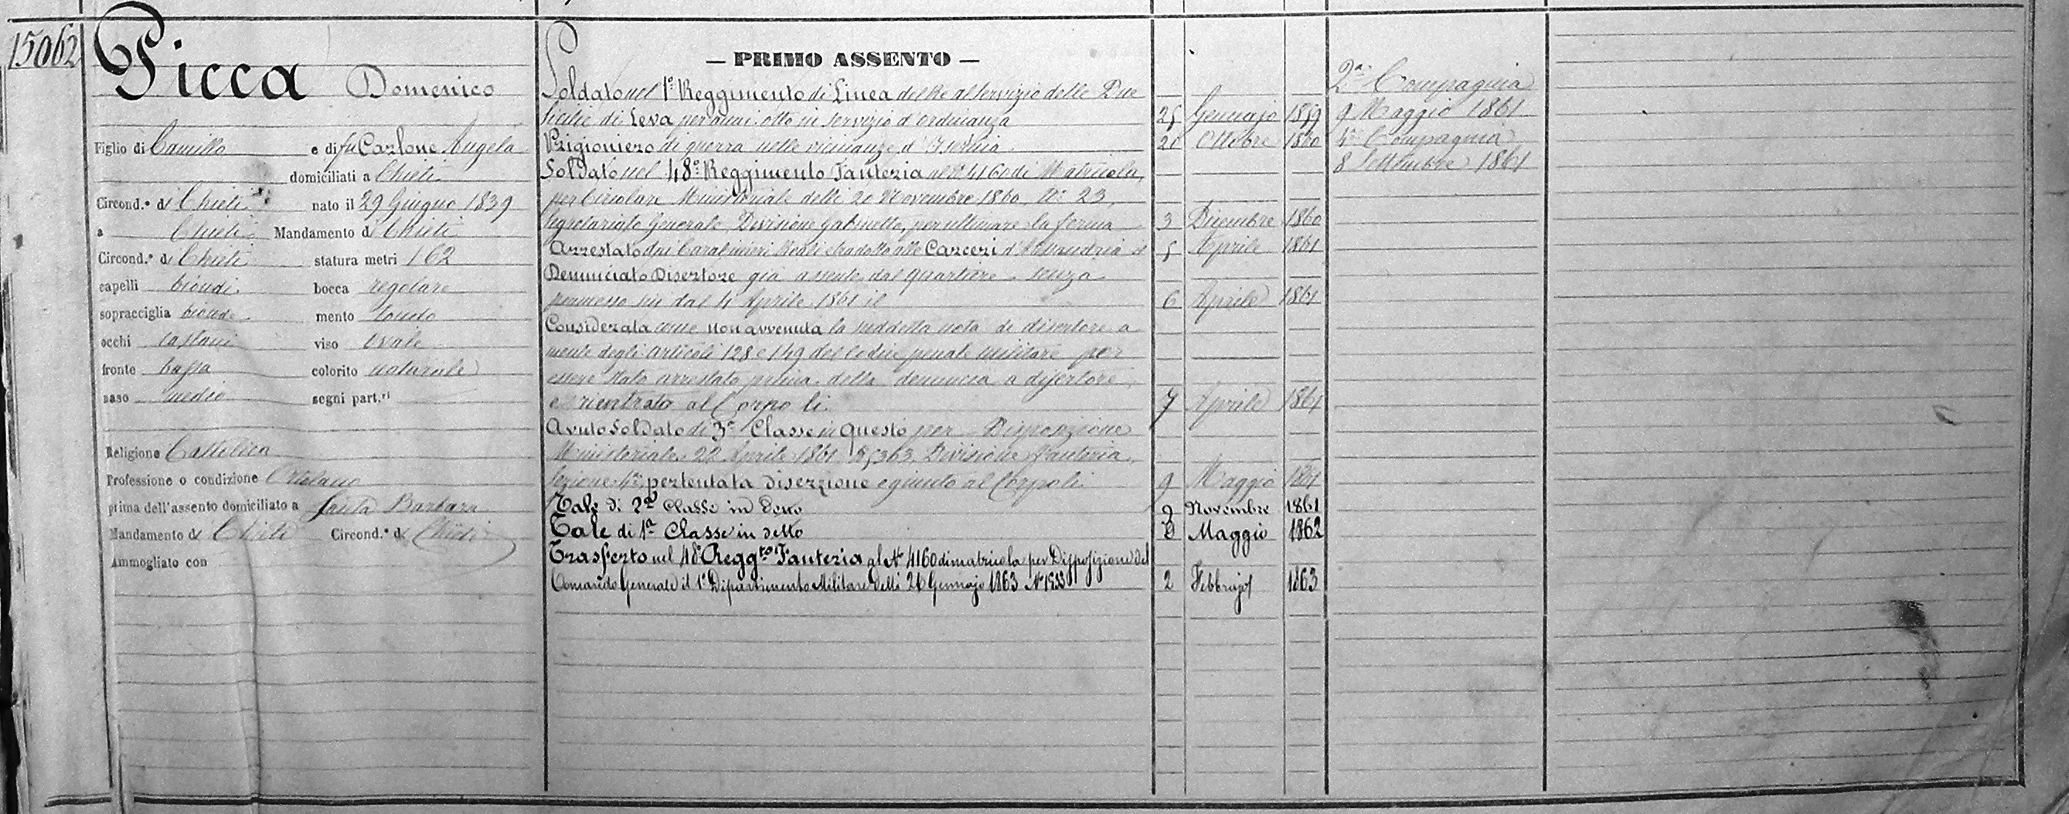 15062
Picca Domenico
Figlio di Camillo e di fu Carlone Angela
domiciliati a Chieti
Circond.º di Chieti nato il 29 Giugno 1839
a Chieti Mandamento di Chieti
Circond.º di Chieti statura metri 1 62
capelli biondi bocca regolare
sopracciglia bionde mento tondo
occhi castani viso ovale
fronte bassa colorito naturale
naso medio segni part.ri
Religione Cattolica
Professione o condizione Ortolano
prima dell'assento domiciliato a Santa Barbara
Mandamento di Chieti Circond.º di Chieti
Ammogliato con
— PRIMO ASSENTO —
Soldato nel 1º Reggimento di Linea del Re al servizio delle Due
Sicilie di Leva per anni otto in servizio d'ordinanza 25 Gennajo 1859
Prigioniero di guerra nelle vicinanze d'Isernia 20 Ottobre 1860
Soldato nel 48º Reggimento Fanteria al Nº 4160 di Matricola,
per Circolare Ministeriale delli 20 Novembre 1860, Nº 23,
Segretariato Generale Divisione Gabinetto, per ultimare la ferma 3 Dicembre 1860
Arrestato dai Carabinieri Reali e tradotto alle Carceri d'Alessandria il 5 Aprile 1861
Denunciato Disertore già assente dal quartiere senza
permesso sin dal 4 Aprile 1861 il 6 Aprile 1861
Considerata come non avvenuta la suddetta nota di disertore a
mente degli articoli 128 e 149 del Codice penale militare per
essere stato arrestato prima della denuncia a disertore
e rientrato al Corpo li 7 Aprile 1861
Avuto Soldato di 3ª Classe in Questo per Disposizione
Ministeriale 22 Aprile 1861 Divisione Fanteria,
sezione per tentata diserzione e giunto al Corpo li 9 Maggio 1861
Tale di 2ª Classe in detto 9 Novembre 1861
Tale di 1ª Classe in detto 9 Maggio 1862
Trasferto nel 48º Regg.to Fanteria al Nº 4160 di matricola per Disposizione del
Comando Generale il 1º Dipartimento Militare delli 26 Gennajo 1863 Nº 1233 2 Febbrajo 1863
2ª Compagnia
9 Maggio 1861
4ª Compagnia
8 Settembre 1861